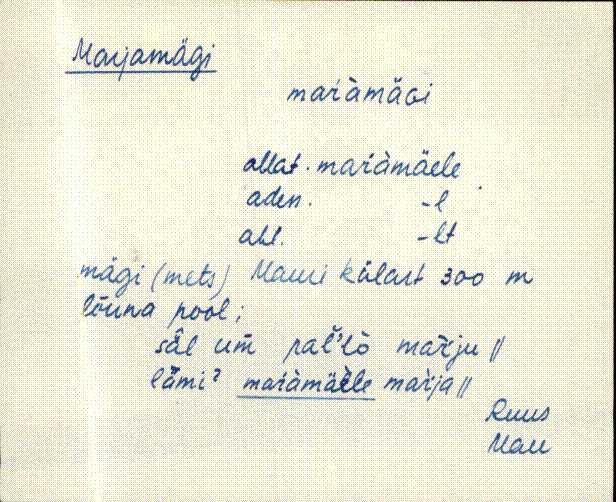 Marjamägi
maŕàmäɢi
allat. maŕàmäele
aden. -l
abl. -lt
mägi (mets) Mauri külast 300 m
lõuna pool;
sä̂l um̄ pal̆'lò maŕju //
lä̆mi? maŕàmäèle maŕja //
Ruus